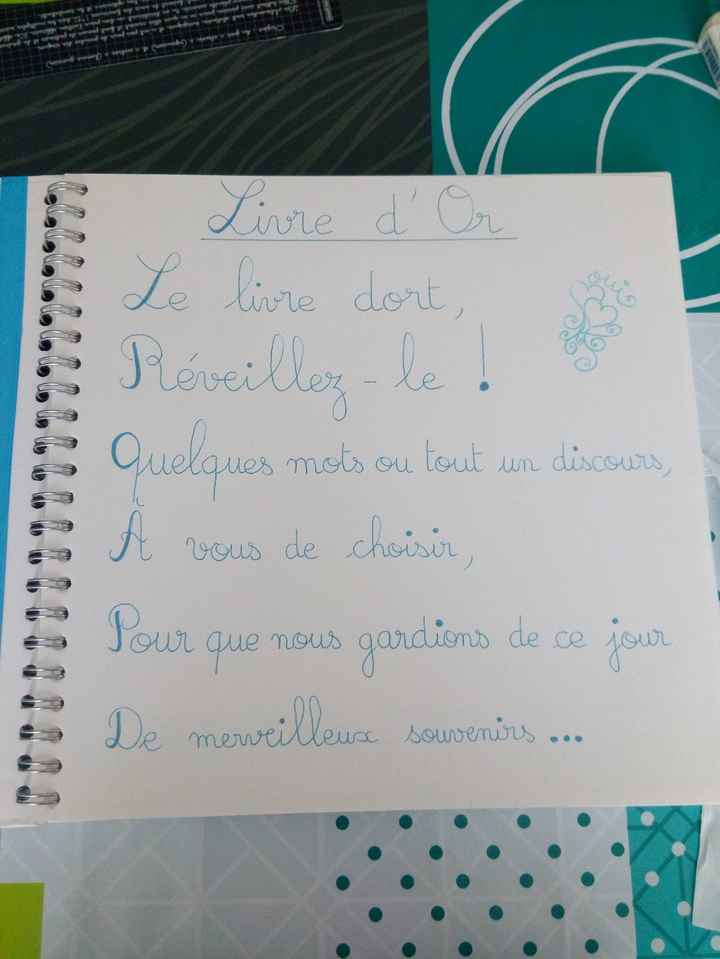 Livre d'Or
Le livre dort,
oui
Réveillez-le !
Quelques mots ou tout un discours,
À vous de choisir,
Pour que nous gardions de ce jour
De merveilleux souvenirs...